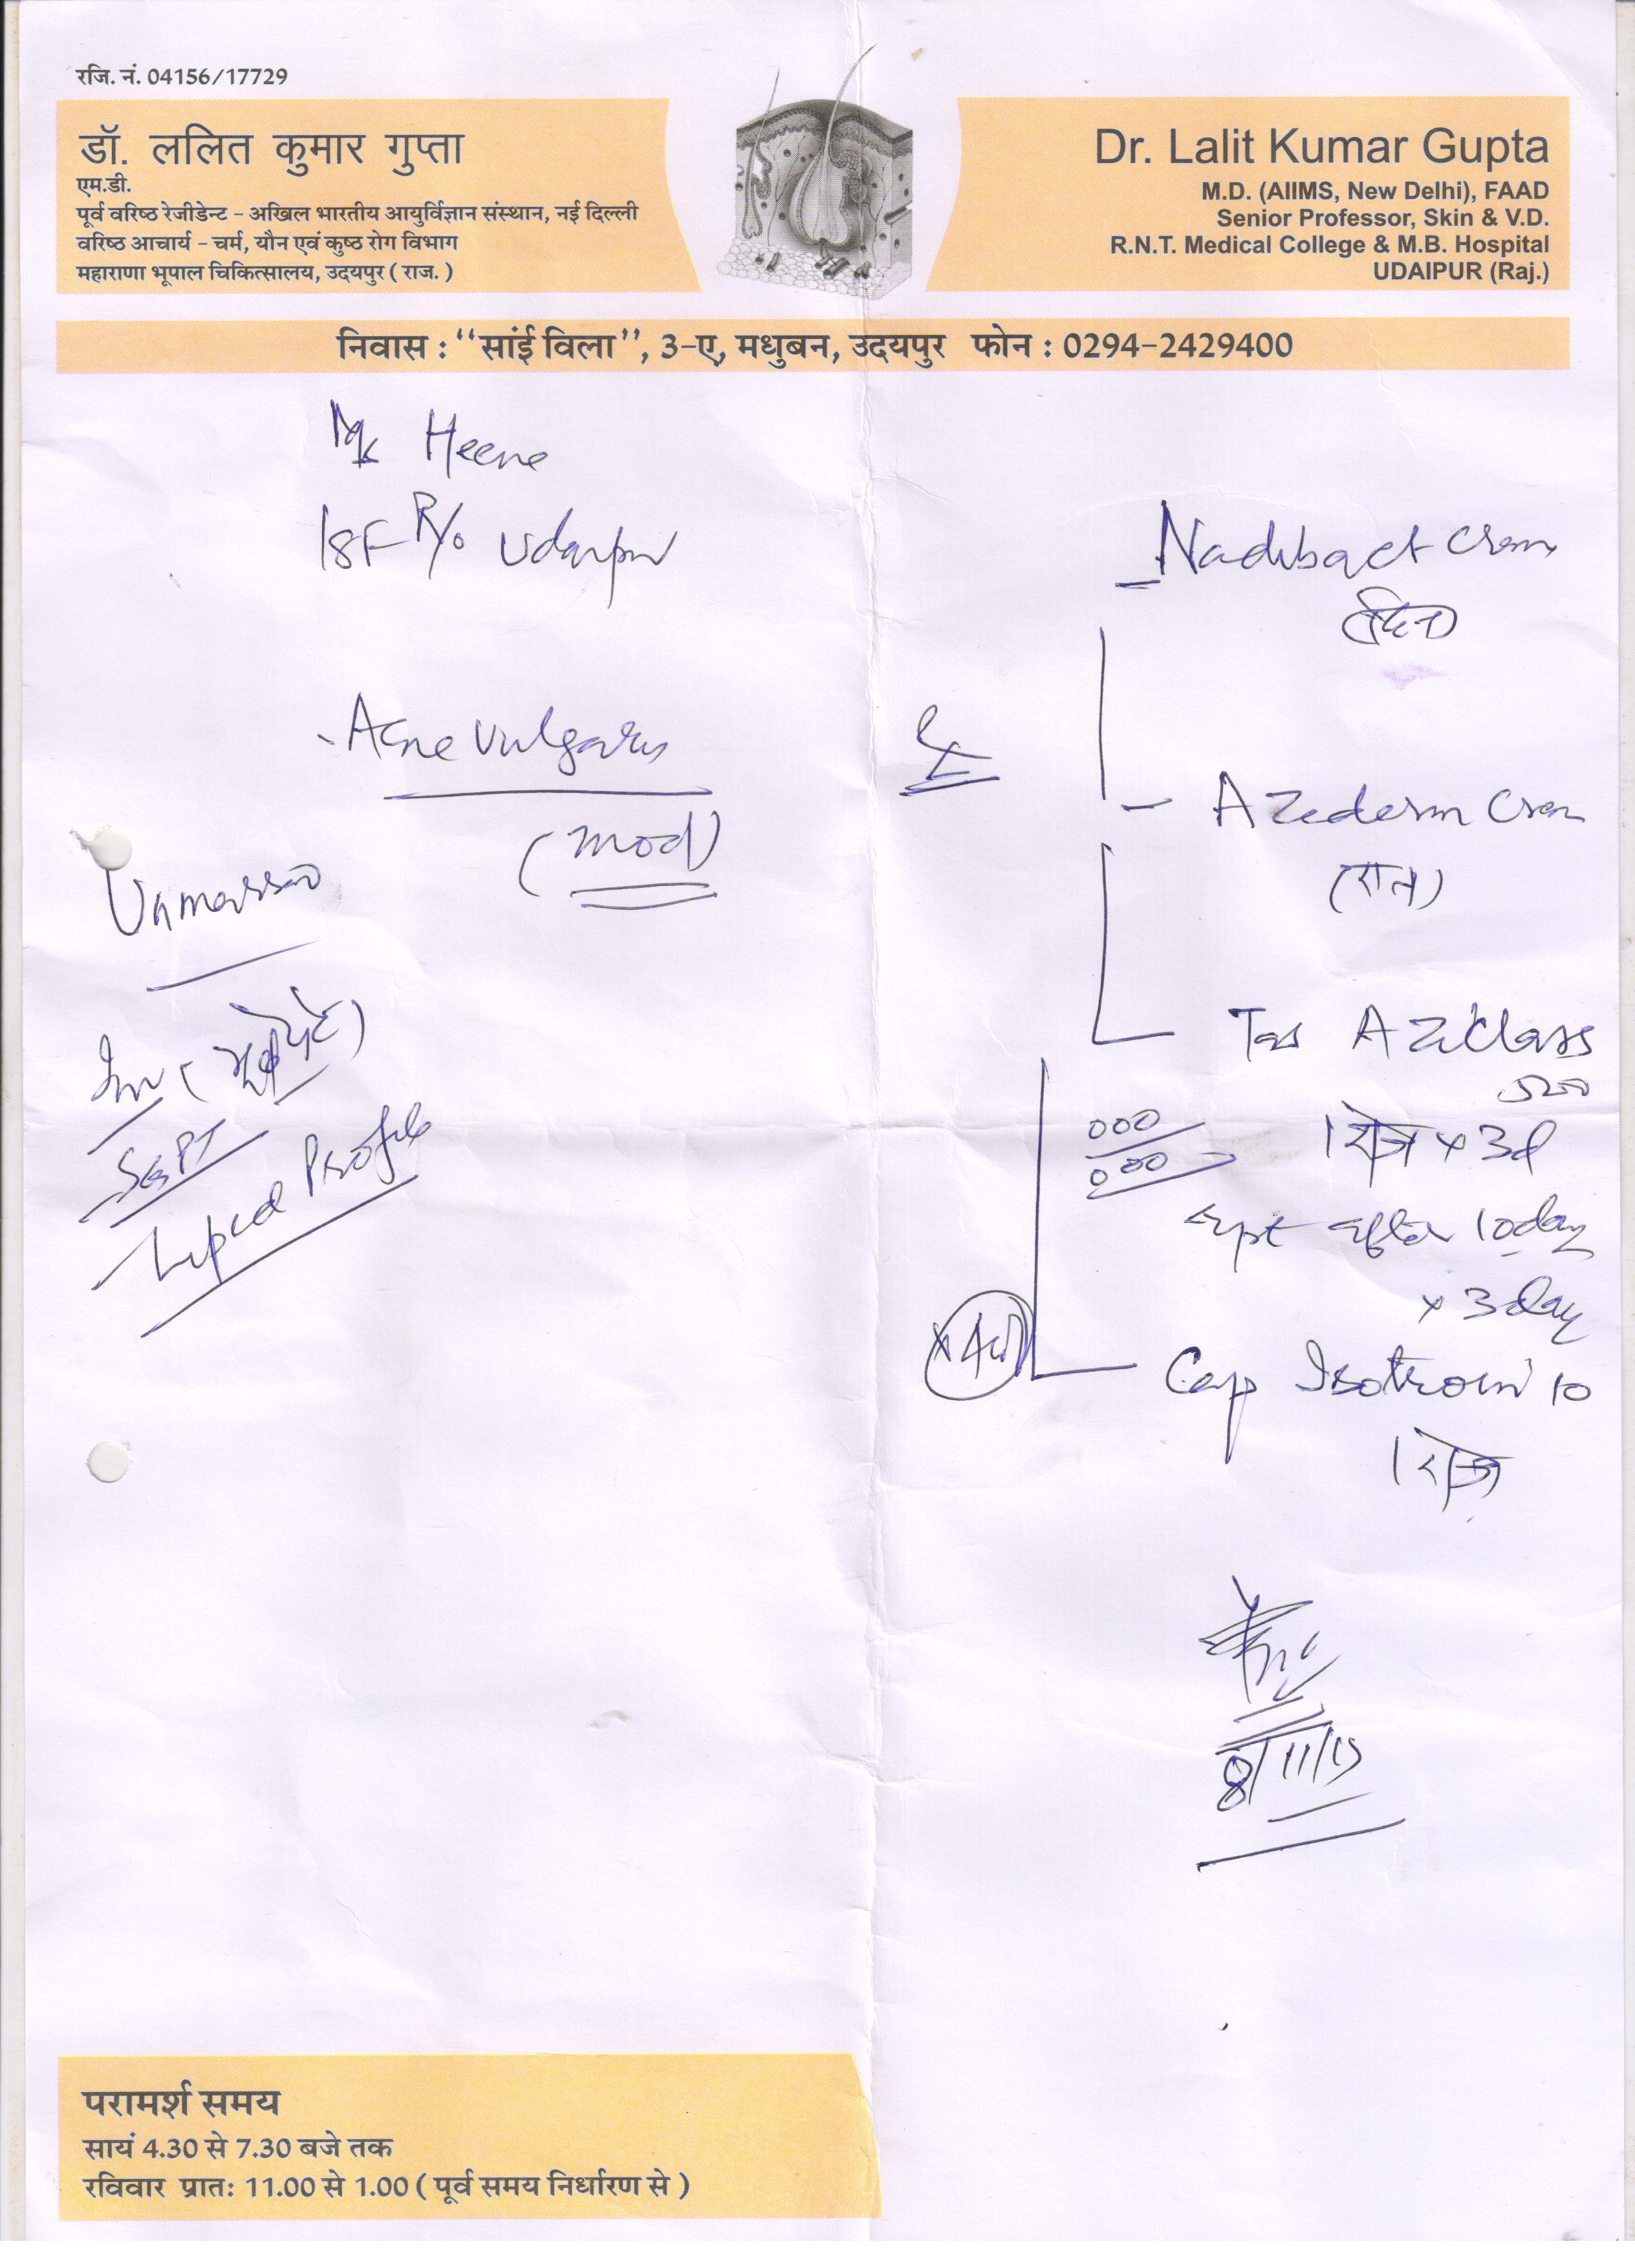 रजि. नं. 04156/17729
डॉ. ललित कुमार गुप्ता
एम.डी.
पूर्व वरिष्ठ रेजीडेन्ट - अखिल भारतीय आयुर्विज्ञान संस्थान, नई दिल्ली
वरिष्ठ आचार्य - चर्म, यौन एवं कुष्ठ रोग विभाग
महाराणा भूपाल चिकित्सालय, उदयपुर ( राज. )
Dr. Lalit Kumar Gupta
M.D. (AIIMS, New Delhi), FAAD
Senior Professor, Skin & V.D.
R.N.T. Medical College & M.B. Hospital
UDAIPUR (Raj.)
निवास : “सांई विला”, 3-ए, मधुबन, उदयपुर फोन : 0294-2429400
Heena
18F R/o Udaipur
- Acne vulgaris
(mod)
Unmarried
Inv (भूखे पेट)
SGPT
Lipid Profile
Rx
- Nadibact Cream
(दिन)
- Azederm Cream
(रात)
Tab Aziclass
500
1 रोज x 3d
000
000
rept after 10 day
x 3 day
Cap Isotroin 10
1 रोज
8/11/19
परामर्श समय
सायं 4.30 से 7.30 बजे तक
रविवार प्रातः 11.00 से 1.00 ( पूर्व समय निर्धारण से )